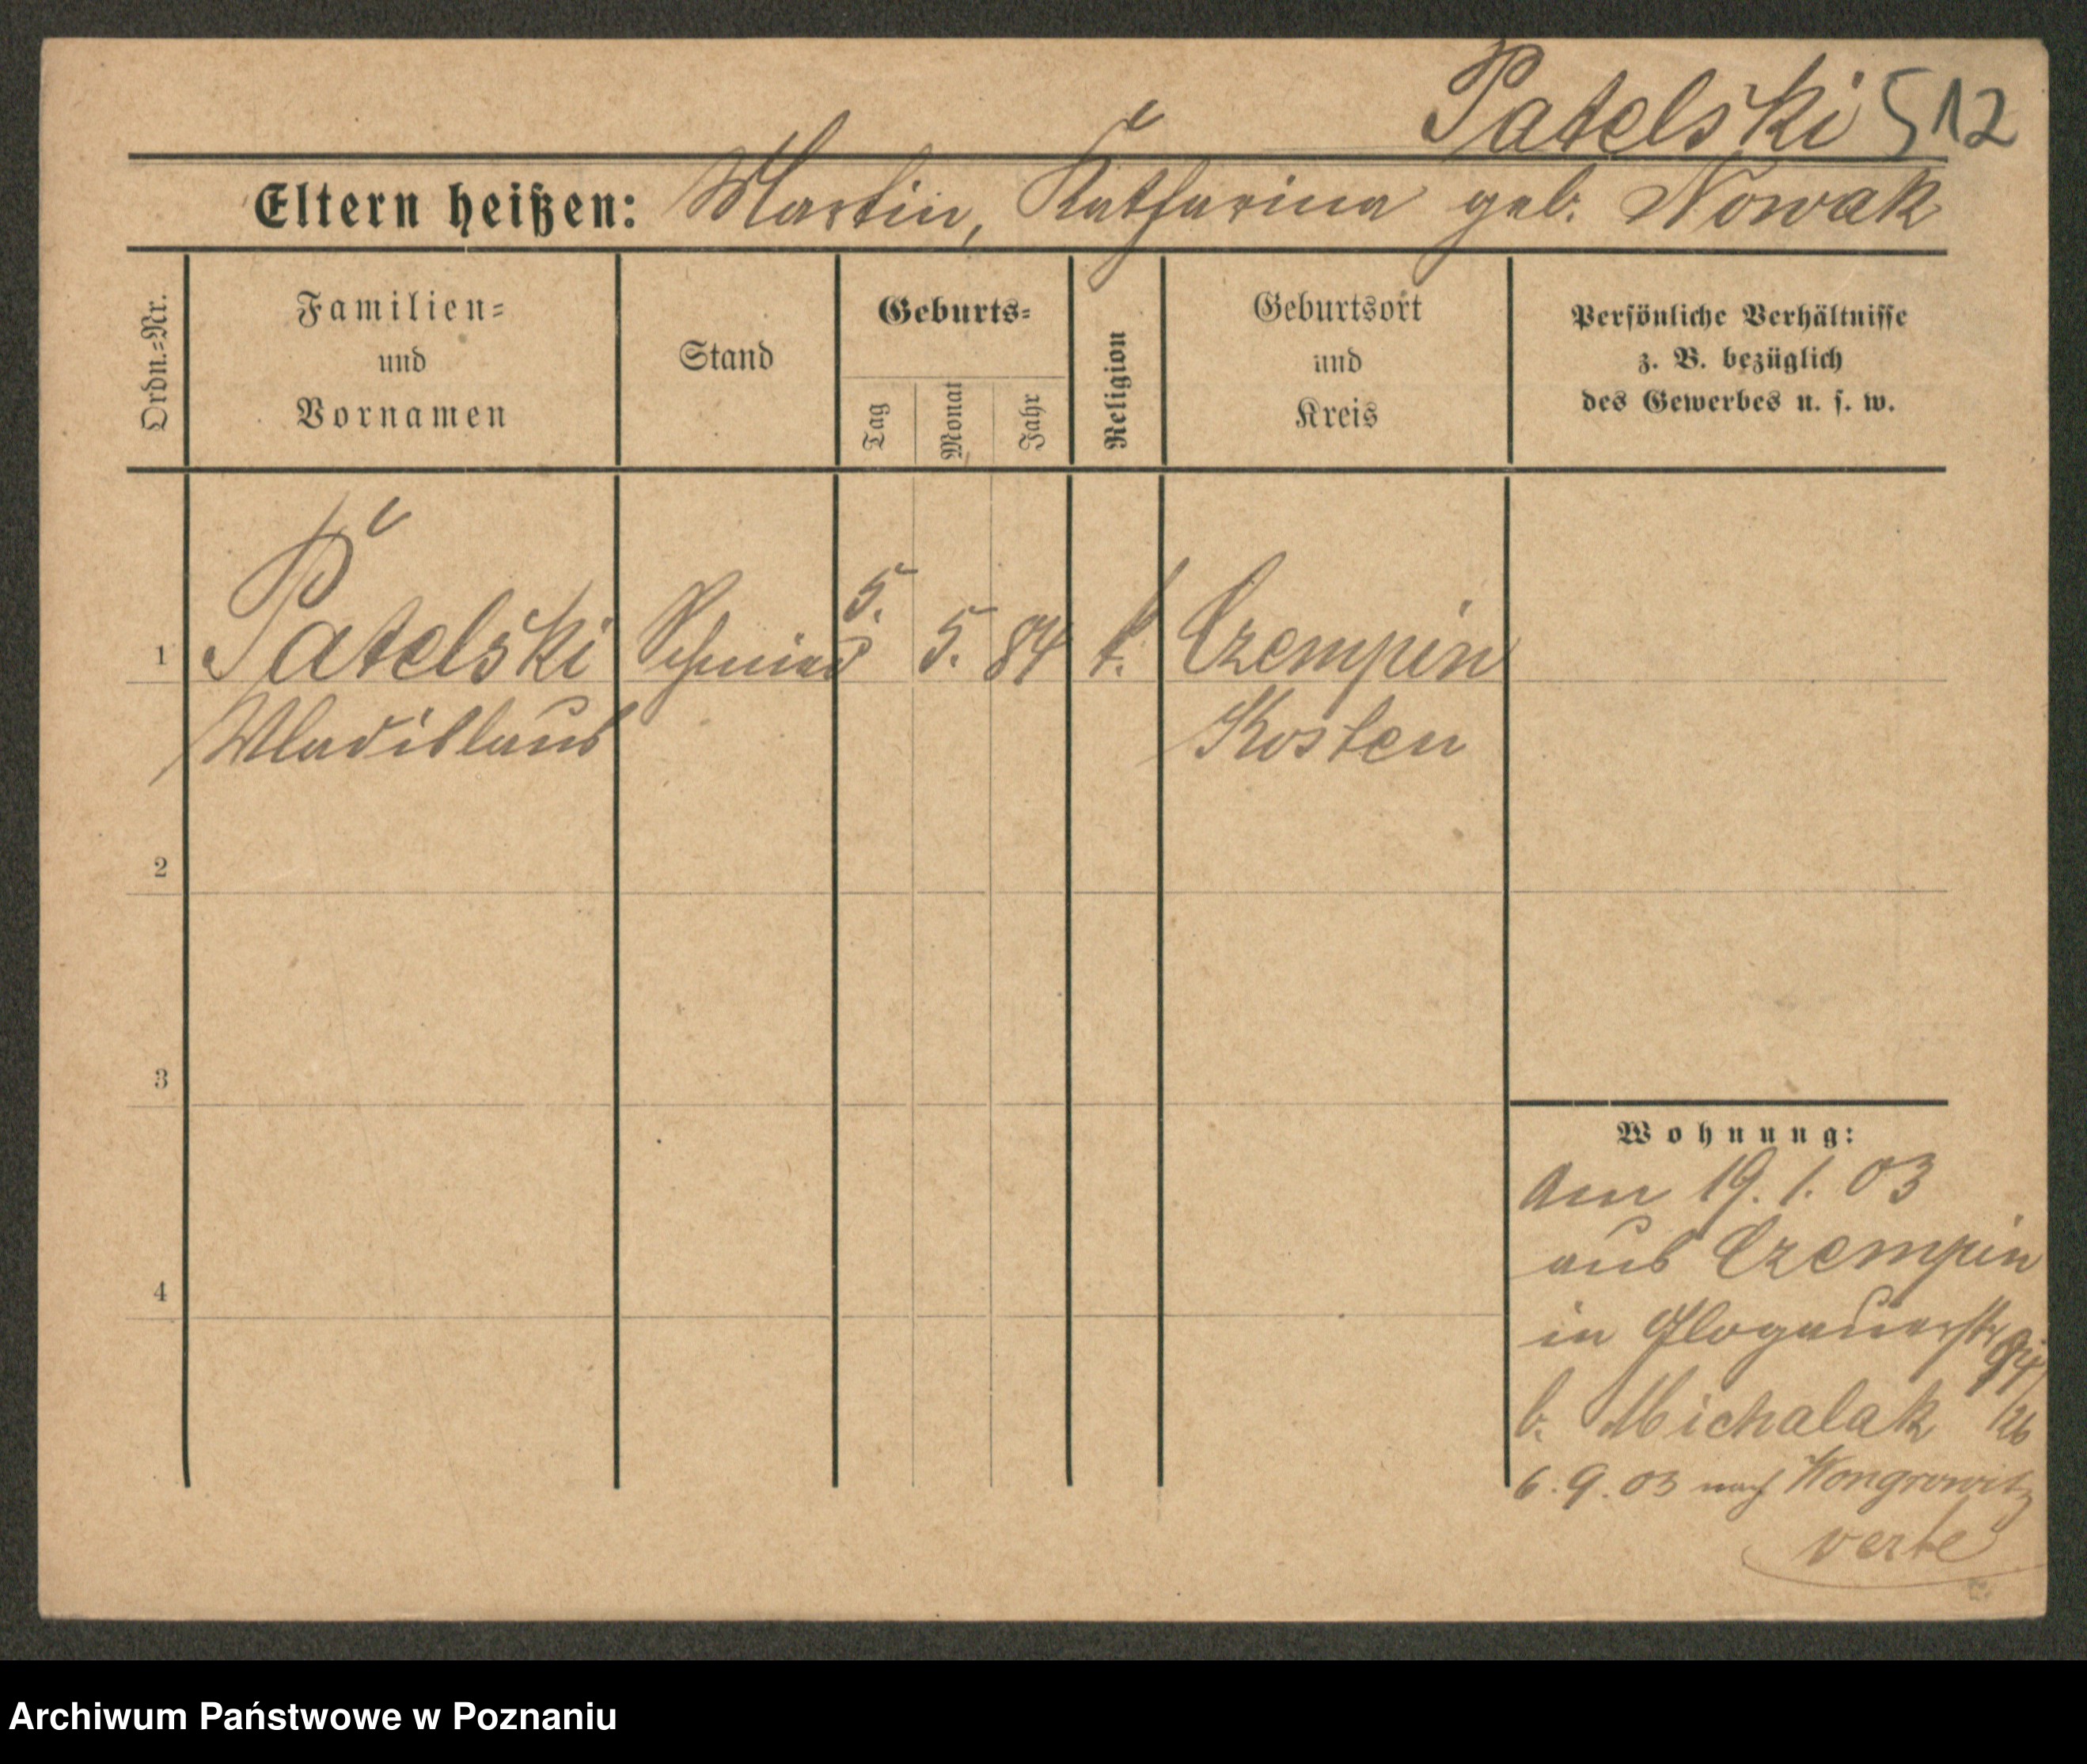 Patelski 512
Eltern heißen: Martin, Katharina geb. Nowak
Ordn.-Nr.
Familien-
und
Vornamen
Stand
Geburts-
Tag
Monat
Jahr
Religion
Geburtsort
und
Kreis
Persönliche Verhältnisse
z. B. bezüglich
des Gewerbes u. s. w.
1 Patelski Schmied 5. 5. 84 k. Czempin
Wladislaus Kosten
2
3
4
Wohnung:
Am 19. 1. 03
aus Czempin
in Glogauerstr
b. Michalak /26
6. 9. 03 nach Wongrowitz
verte
Archiwum Państwowe w Poznaniu